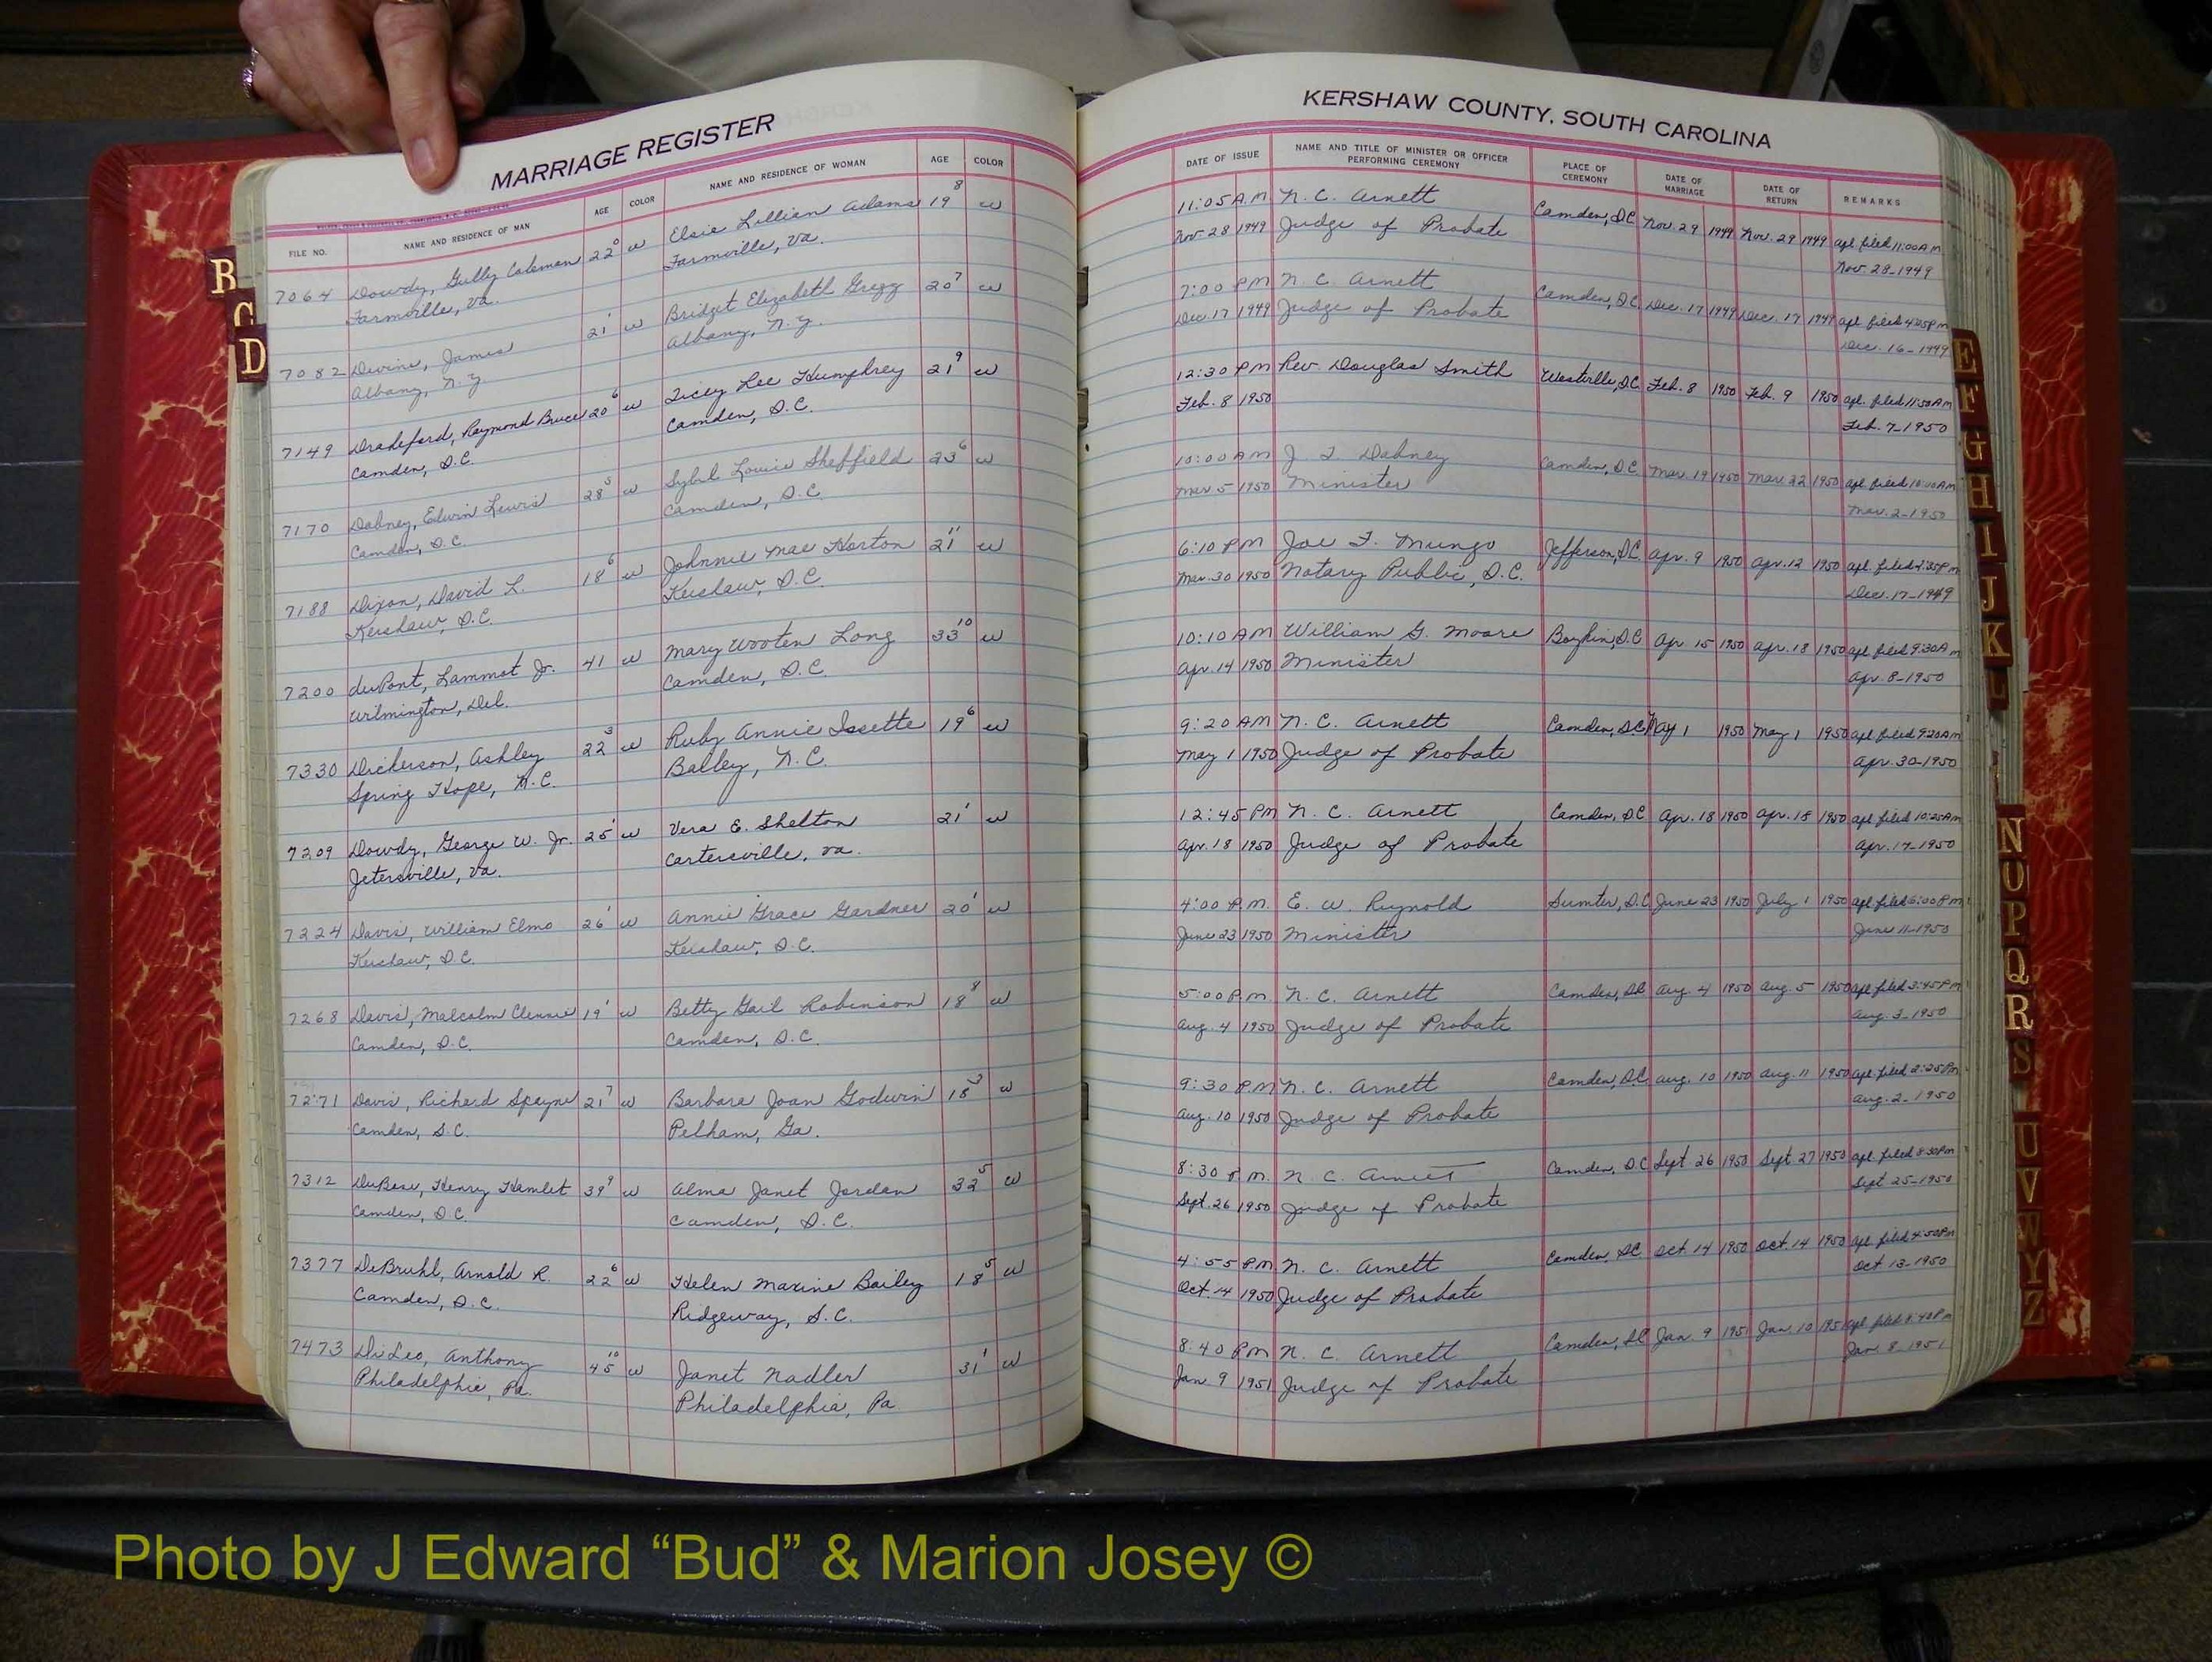 MARRIAGE REGISTER
FILE NO. NAME AND RESIDENCE OF MAN AGE COLOR NAME AND RESIDENCE OF WOMAN AGE COLOR
7064 Dowdy, Gully Coleman 22 0 w Elsie Lillian Adams 19 8 w
Farmville, Va. Farmville, Va.
7082 Devine, James 21 1 w Bridget Elizabeth Gregg 20 7 w
Albany, N.Y. Albany, N.Y.
7149 Drakeford, Raymond Bruce 20 6 w Ticey Lee Humphrey 21 9 w
Camden, S.C. Camden, S.C.
7170 Dabney, Edwin Lewis 28 5 w Sybil Louise Sheffield 23 6 w
Camden, S.C. Camden, S.C.
7188 Dixon, David L. 18 6 w Johnnie Mae Horton 21 11 w
Kershaw, S.C. Kershaw, S.C.
7200 duPont, Lammot Jr. 41 w Mary Wooten Long 33 10 w
Wilmington, Del. Camden, S.C.
7330 Dickerson, Ashley 22 3 w Ruby Annie Issette 19 6 w
Spring Hope, N.C. Bailey, N.C.
7209 Dowdy, George W. Jr. 25 1 w Vera E. Shelton 21 1 w
Jetersville, Va. Cartersville, Va.
7224 Davis, William Elmo 26 1 w Annie Grace Gardner 20 1 w
Kershaw, S.C. Kershaw, S.C.
7268 Davis, Malcolm 19 1 w Betty Gail Robinson 18 8 w
Camden, S.C. Camden, S.C.
7271 Davis, Richard 21 7 w Barbara Joan Godwin 18 w
Camden, S.C. Pelham, Ga.
7312 DuBose, Henry Hamlet 39 9 w Alma Janet Jordan 32 5 w
Camden, S.C. Camden, S.C.
7377 DeBruhl, Arnold R. 22 6 w Helen Maxine Bailey 18 5 w
Camden, S.C. Ridgeway, S.C.
7473 DiLeo, Anthony 45 10 w Janet Nadler 31 1 w
Philadelphia, Pa. Philadelphia, Pa.
KERSHAW COUNTY, SOUTH CAROLINA
DATE OF ISSUE NAME AND TITLE OF MINISTER OR OFFICER PERFORMING CEREMONY PLACE OF CEREMONY DATE OF MARRIAGE DATE OF RETURN REMARKS
11:05 A.M. N. C. Arnett Camden, S.C. Nov. 29 1949 Nov. 29 1949 apl. filed 11:00 AM
Nov. 28 1949 Judge of Probate Nov. 28-1949
7:00 PM N. C. Arnett Camden, S.C. Dec. 17 1949 Dec. 17 1949 apl. filed 4:05 PM
Dec. 17 1949 Judge of Probate Dec. 16-1949
12:30 PM Rev. Douglas Smith Westville, S.C. Feb. 8 1950 Feb. 9 1950 apl. filed 11:50 AM
Feb. 8 1950 Feb. 7-1950
10:00 AM J. T. Dabney Camden, S.C. Mar. 19 1950 Mar. 22 1950 apl. filed 10:00 AM
Mar. 5 1950 Minister Mar. 2-1950
6:10 PM Joe T. Mungo Jefferson, S.C. Apr. 9 1950 Apr. 12 1950 apl. filed 2:35 PM
Mar. 30 1950 Notary Public, S.C. Dec. 17-1949
10:10 AM William G. Moore Boykin, S.C. Apr. 15 1950 Apr. 18 1950 apl. filed 9:30 AM
Apr. 14 1950 Minister Apr. 8-1950
9:20 AM N. C. Arnett Camden, S.C. May 1 1950 May 1 1950 apl. filed 9:20 AM
May 1 1950 Judge of Probate Apr. 30-1950
12:45 PM N. C. Arnett Camden, S.C. Apr. 18 1950 Apr. 18 1950 apl. filed 10:25 AM
Apr. 18 1950 Judge of Probate Apr. 17-1950
4:00 P.M. E. W. Reynold Sumter, S.C. June 23 1950 July 1 1950 apl. filed 6:00 PM
June 23 1950 Minister June 11-1950
5:00 P.M. N. C. Arnett Camden, S.C. Aug. 4 1950 Aug. 5 1950 apl. filed 3:45 PM
Aug. 4 1950 Judge of Probate Aug. 3-1950
9:30 P.M. N. C. Arnett Camden, S.C. Aug. 10 1950 Aug. 11 1950 apl. filed 2:25 PM
Aug. 10 1950 Judge of Probate Aug. 2-1950
8:30 P.M. N. C. Arnett Camden, S.C. Sept 26 1950 Sept 27 1950 apl. filed 8:30 PM
Sept. 26 1950 Judge of Probate Sept 25-1950
4:55 PM N. C. Arnett Camden, S.C. Oct. 14 1950 Oct. 14 1950 apl. filed 4:50 PM
Oct. 14 1950 Judge of Probate Oct 13-1950
8:40 PM N. C. Arnett Camden, S.C. Jan. 9 1951 Jan. 10 1951 apl. filed 8:40 PM
Jan 9 1951 Judge of Probate Jan 8-1951
B
C
D
E
F
G
H
I
J
K
L
N
O
P
Q
R
S
U
V
W
Y
Z
Photo by J Edward “Bud” & Marion Josey ©